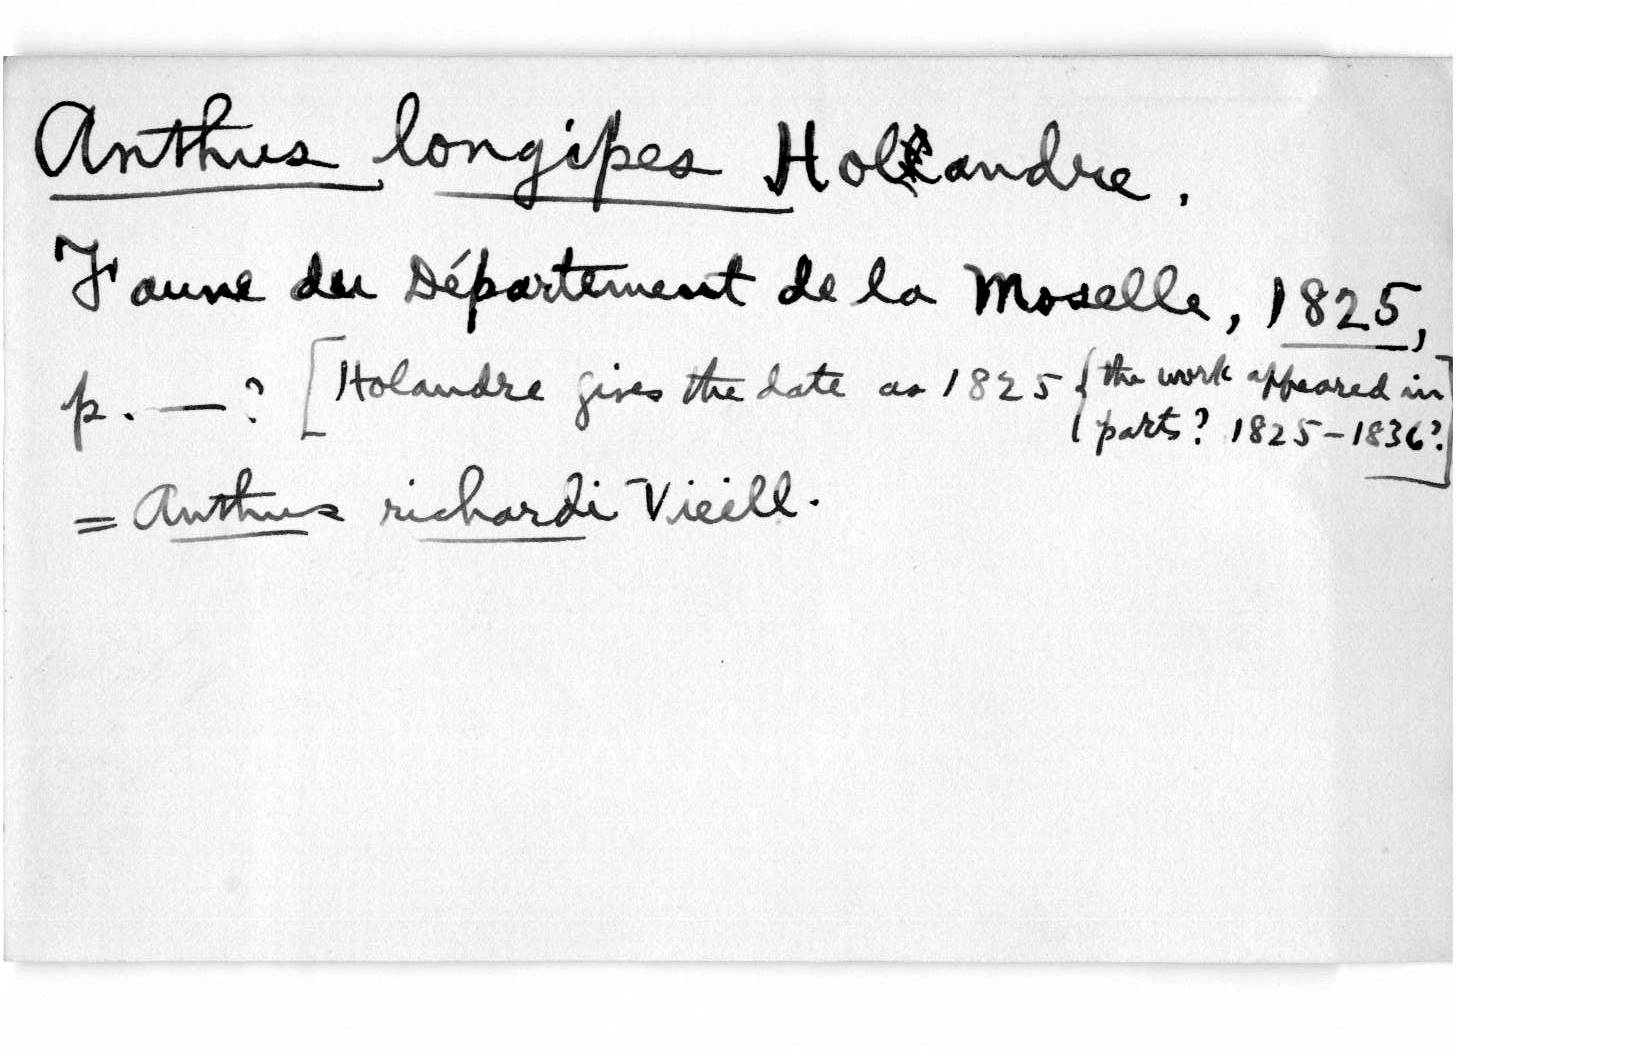 Anthus longipes Holandre.
Faune du Département de la Moselle, 1825,
p. —? [Holandre gives the date as 1825 {the work appeared in
parts? 1825-1836?]
= Anthus richardi Vieill.